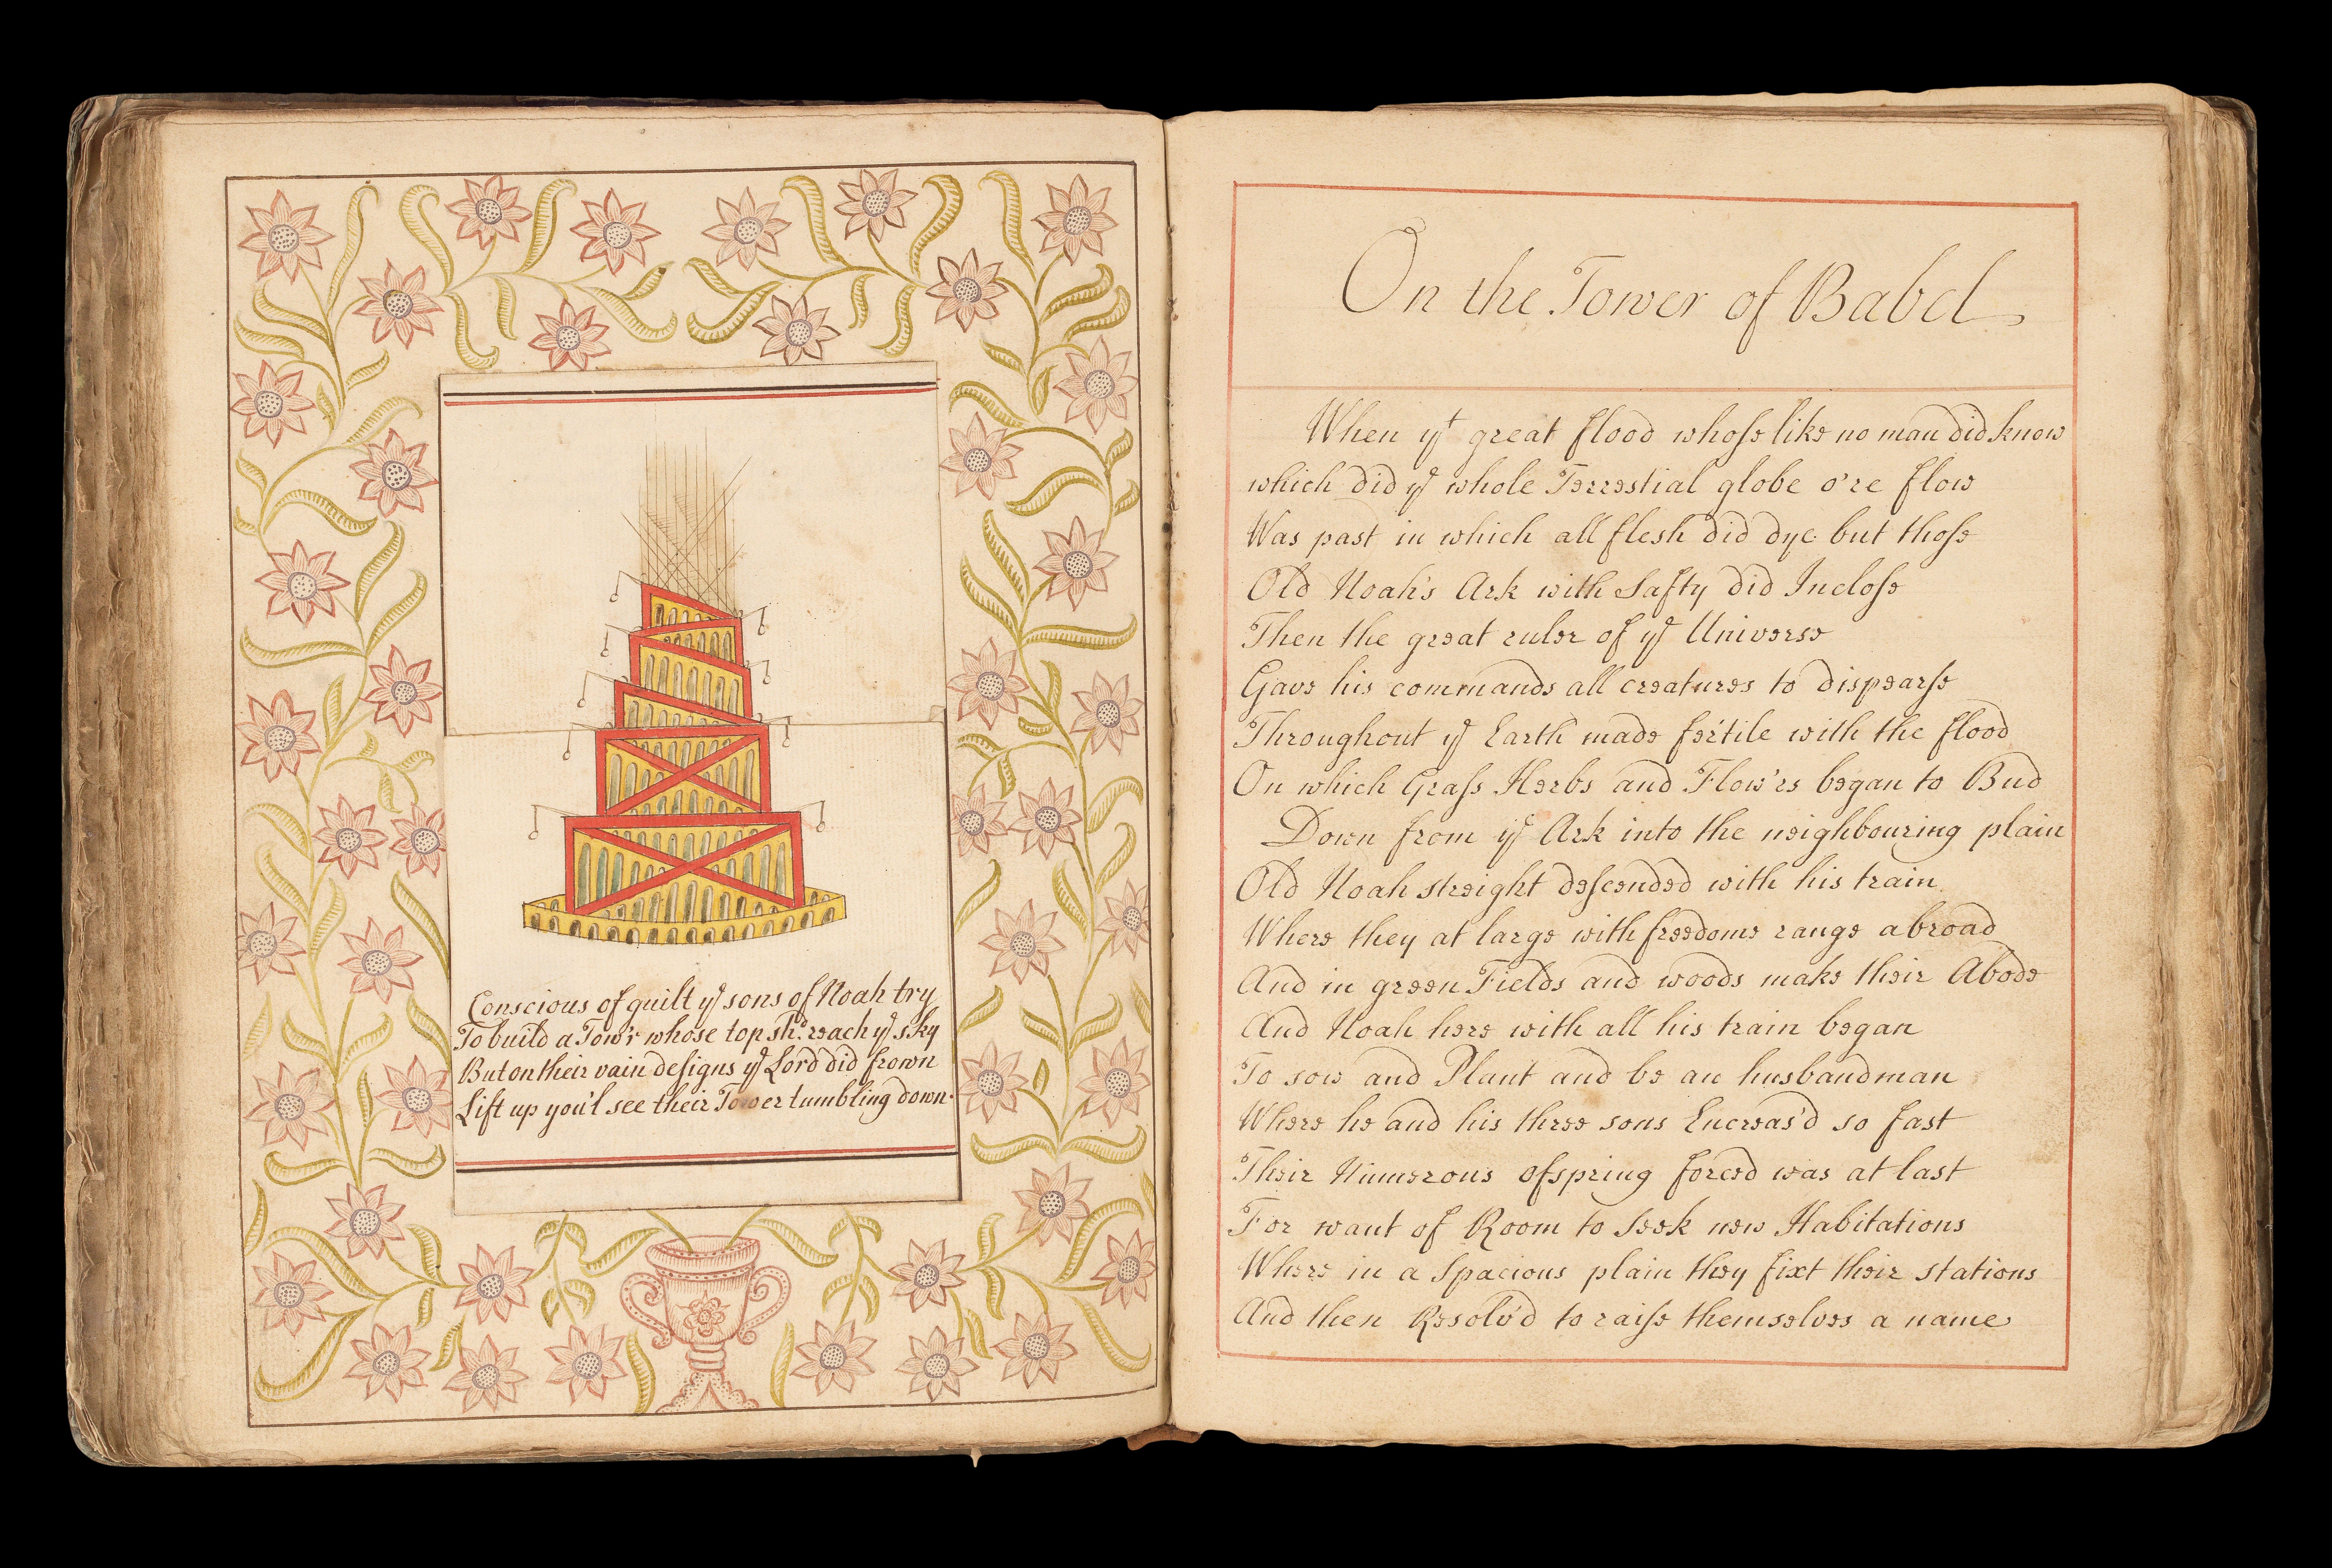 Conscious of guilt yͤ sons of Noah try
To build a Tow'r whose top shͩ. reach yͤ sky
But on their vain designs yͤ Lord did frown
Lift up you'l see their Tower tumbling down.
On the Tower of Babel
When yͭ great flood whose like no man did know
which did yͤ whole Terrestial globe o're flow
Was past in which all flesh did dye but those
Old Noah's Ark with Safty did Inclose
Then the great ruler of yͤ Universe
Gave his commands all creatures to dispearse
Throughout yͤ Earth made fertile with the flood
On which Grass Herbs and Flow'rs began to Bud
Down from yͤ Ark into the neighbouring plain
Old Noah streight descended with his train
Where they at large with freedome range abroad
And in green Fields and woods make their Abode
And Noah here with all his train began
To sow and Plant and be an husbandman
Where he and his three sons Encreas'd so fast
Their Numerous ofspring forced was at last
For want of Room to Seek new Habitations
Where in a Spacious plain they fixt their stations
And then Resolv'd to raise themselves a name